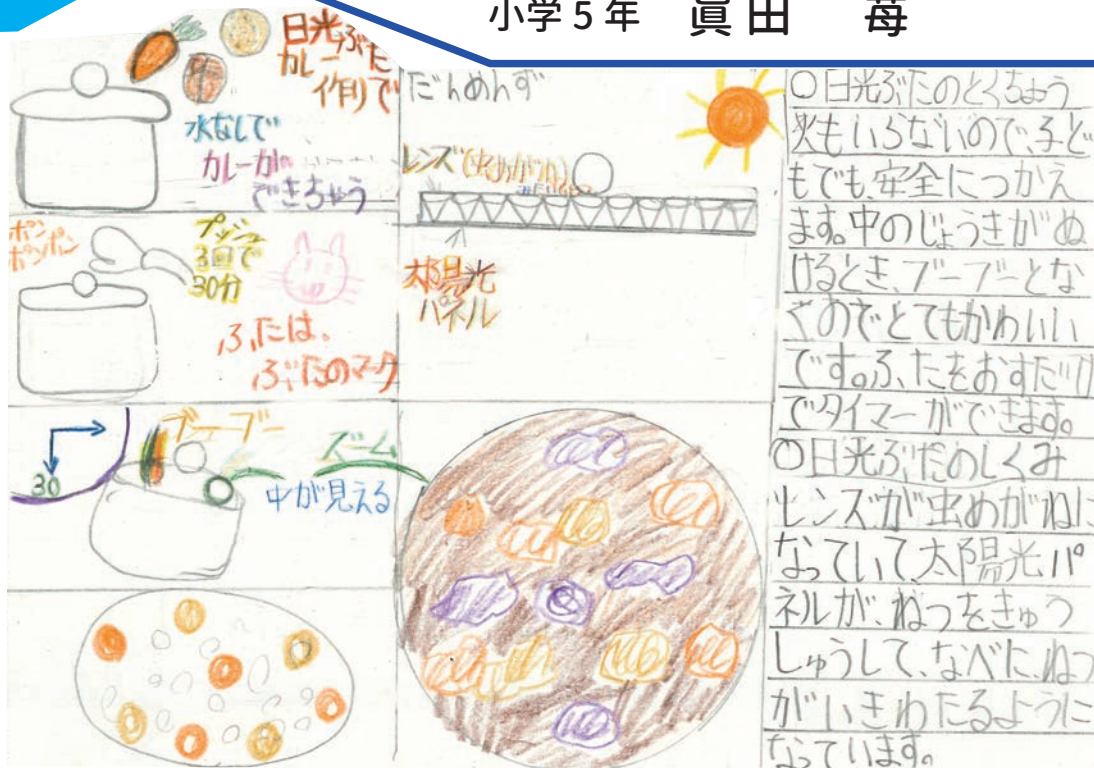 小学5年 眞田 苺
日光ぶた
カレー
作りで
水なしで
カレーが
できちゃう
ポン
ポンポン
プッシュ
3回で
30分
ふたは、
ぶたのマーク
30
ブーブー
ズーム
中が見える
だんめんず
レンズ(虫めがね)
太陽光
パネル
○日光ぶたのとくちょう
火もいらないので、子ど
もでも、安全につかえ
ます。中のじょうきがぬ
けるとき、ブーブーとな
くのでとてもかわいい
です。ふたをおすだけ
でタイマーができます。
○日光ぶたのしくみ
レンズが虫めがねに
なっていて、太陽光パ
ネルが、ねつをきゅう
しゅうして、なべに、ねつ
がいきわたるように
なっています。